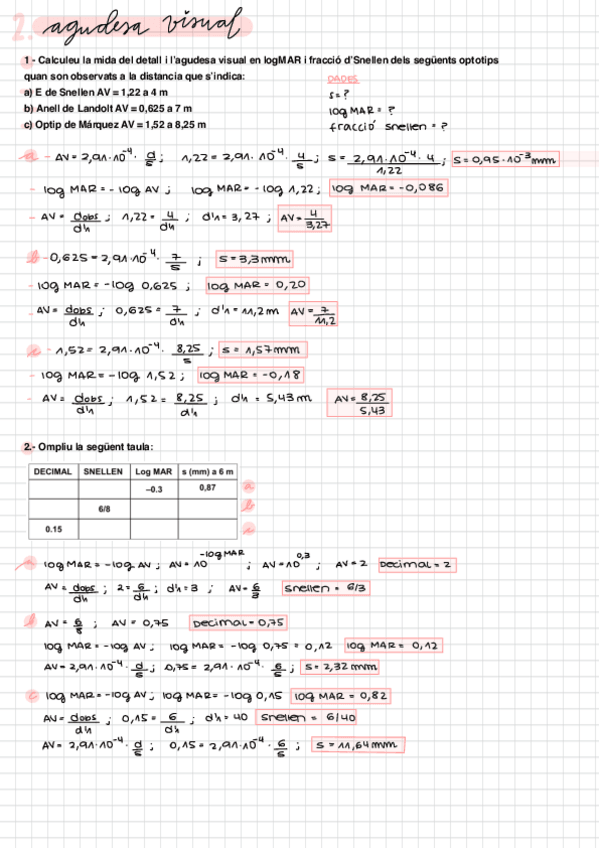 2. agudesa visual
1 - Calculeu la mida del detall i l'agudesa visual en logMAR i fracció d'Snellen dels següents optotips
quan son observats a la distancia que s'indica:
DADES
a) E de Snellen AV = 1,22 a 4 m
s=?
b) Anell de Landolt AV = 0,625 a 7 m
log MAR = ?
c) Optip de Márquez AV = 1,52 a 8,25 m
fracció snellen = ?
a - AV = 2,91·10⁻⁴ · d/s ; 1,22 = 2,91·10⁻⁴ · 4/s ; s = 2,91·10⁻⁴·4/1,22 ; s = 0,95·10⁻³ mm
- log MAR = - log AV ; log MAR = - log 1,22 ; log MAR = -0,086
- AV = dobs/dh ; 1,22 = 4/dh ; d'h = 3,27 ; AV = 4/3,27
b - 0,625 = 2,91·10⁻⁴ · 7/s ; s = 3,3 mm
- log MAR = - log 0,625 ; log MAR = 0,20
- AV = dobs/dh ; 0,625 = 7/d'h ; d'h = 11,2 m AV = 7/11,2
c - 1,52 = 2,91·10⁻⁴ · 8,25/s ; s = 1,57 mm
- log MAR = - log 1,52 ; log MAR = -0,18
- AV = dobs/d'h ; 1,52 = 8,25/d'h ; dh = 5,43 m AV = 8,25/5,43
2.- Ompliu la següent taula:
DECIMAL SNELLEN Log MAR s (mm) a 6 m
–0.3 0,87 a
6/8 b
0.15 c
a log MAR = - log AV ; AV = 10^-log MAR ; AV = 10^0,3 ; AV = 2 Decimal = 2
AV = dobs/dh ; 2 = 6/dh ; d'h = 3 ; AV = 6/3 Snellen = 6/3
b AV = 6/8 ; AV = 0,75 Decimal = 0,75
log MAR = - log AV ; log MAR = - log 0,75 = 0,12 log MAR = 0,12
AV = 2,91·10⁻⁴ · d/s ; 0,75 = 2,91·10⁻⁴ · 6/s ; s = 2,32 mm
c log MAR = - log AV ; log MAR = - log 0,15 log MAR = 0,82
AV = dobs/dh ; 0,15 = 6/dh ; d'h = 40 Snellen = 6/40
AV = 2,91·10⁻⁴ · d/s ; 0,15 = 2,91·10⁻⁴ · 6/s ; s = 11,64 mm